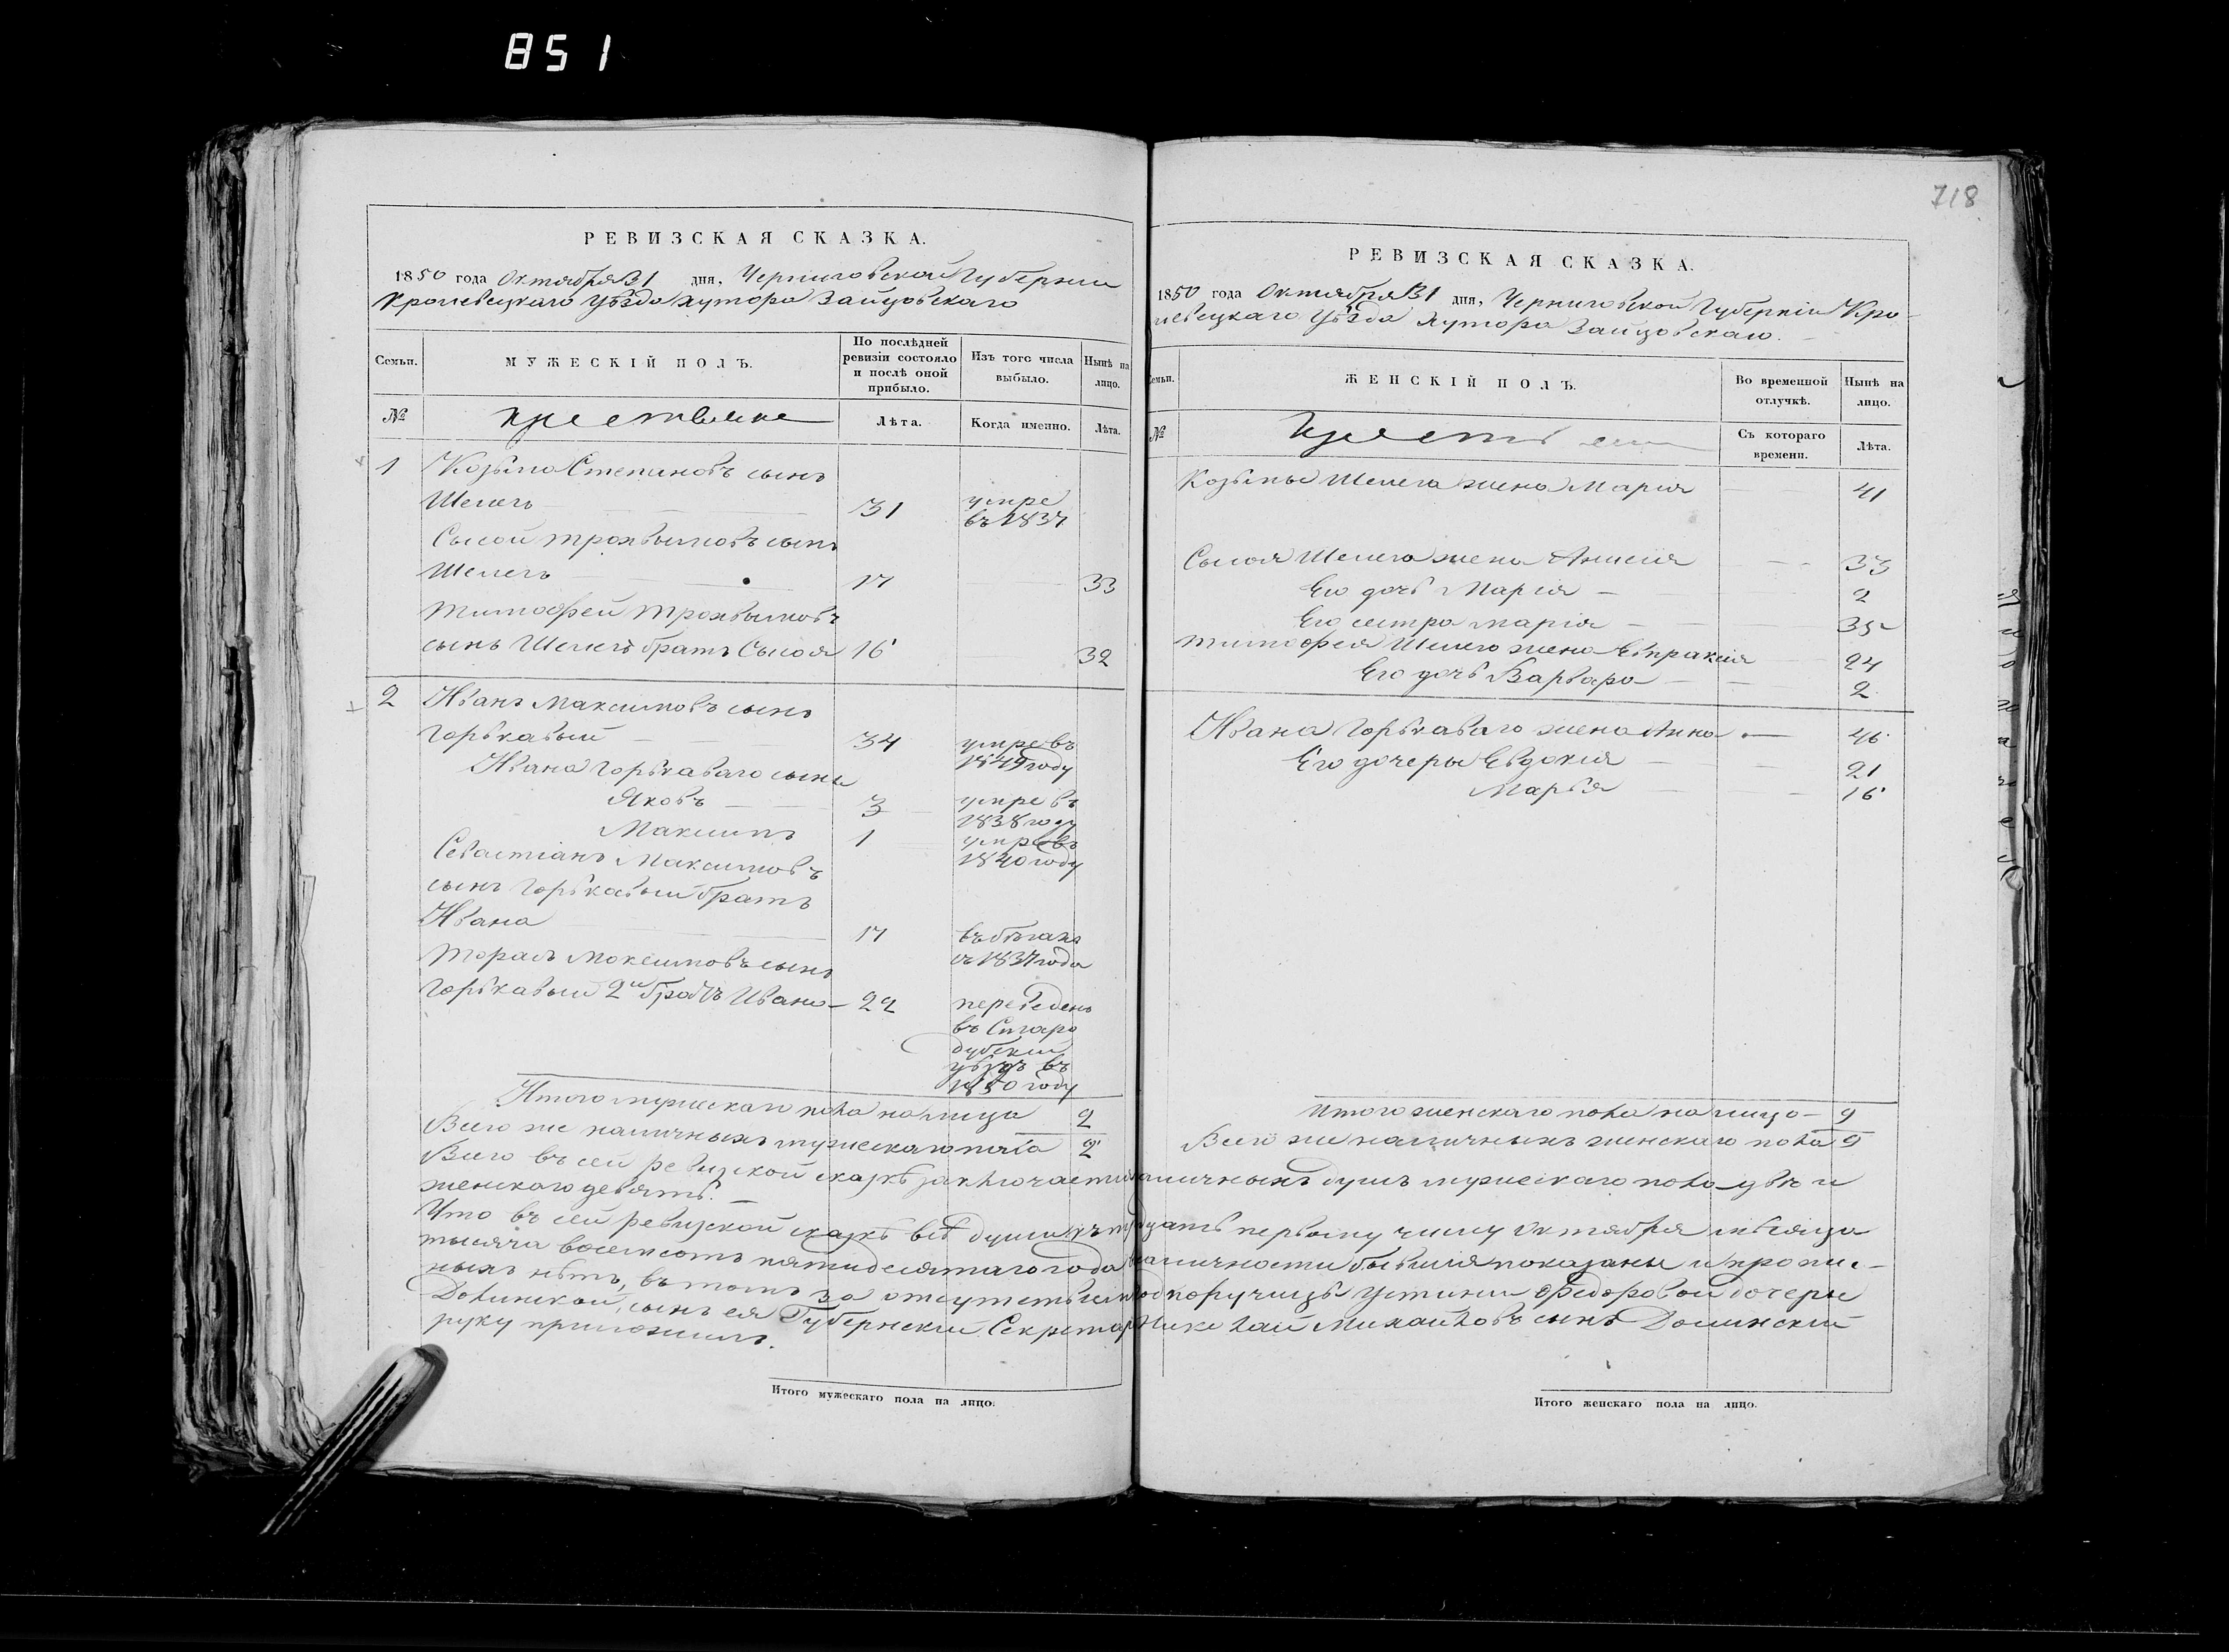 851
718
РЕВИЗСКАЯ СКАЗКА.
1850 года Октября 31 дня, Черниговской Губернии
Кролевецкаго уѣзда хутора Зайцовскаго
Семьи.
МУЖЕСКІЙ ПОЛЪ.
По послѣдней ревизіи состояло и послѣ оной прибыло.
Изъ того числа выбыло.
Нынѣ на лицо.
№
Лѣта.
Когда именно.
Лѣта.
1 Козьма Степановъ сынъ
Шелегъ 31 умре
въ 1837
Сысой Трохвимовъ сынъ
Шелегъ 17 33
Тимофей Трохвимовъ
сынъ Шелегъ братъ Сысоя 16 32
2 Иванъ Максимовъ сынъ
Горькавый 34 умре въ
1849 году
Ивана Горькаваго сыны
Яковъ 3 умре въ
1838 году
Максимъ 1 умре въ
1840 году
Севастіанъ Максимовъ
сынъ Горькавый братъ
Ивана 17 въ бѣгахъ
съ 1837 года
Тарасъ Максимовъ сынъ
Горькавый 2й братъ Ивана 22 переведенъ
въ Старо
дубскій
уѣздъ въ
1850 году
Итого мужескаго пола на лицо 2
Всего же наличныхъ мужескаго пола 2
РЕВИЗСКАЯ СКАЗКА.
1850 года Октября 31 дня, Черниговской Губерніи Кро-
левецкаго уѣзда хутора Зайцовскаго.
Семьи.
ЖЕНСКІЙ ПОЛЪ.
Во временной отлучкѣ.
Нынѣ на лицо.
№
Съ котораго времени.
Лѣта.
Козьмы Шелега жена Марія 41
Сысоя Шелега жена Анисія 33
Его дочь Марія 2
Его сестра Марія 35
Тимофея Шелега жена Евпраксія 24
Его дочь Варвара 2
Ивана Горькаваго жена Анна 46
Его дочеры Евдокія 21
Марья 16
Итого женскаго пола на лицо 9
Всего же наличныхъ женскаго пола 9
Всего въ сей ревизской сказкѣ заключается наличныхъ душъ мужескаго пола двѣ и
женскаго девять.
Что въ сей ревизской сказкѣ всѣ души къ тридцать первому числу Октября мѣсяца
тысяча восемсотъ пятидесятаго года наличности бывшія показаны и пропис-
ныхъ нѣтъ, въ томъ за отсутствіемъ подпоручицы Устиньи Федоровой дочери
Долинской, сынъ ея Губернскій Секретарь Николай Михайловъ сынъ Долинскій
руку приложилъ.
Итого мужескаго пола на лицо.
Итого женскаго пола на лицо.